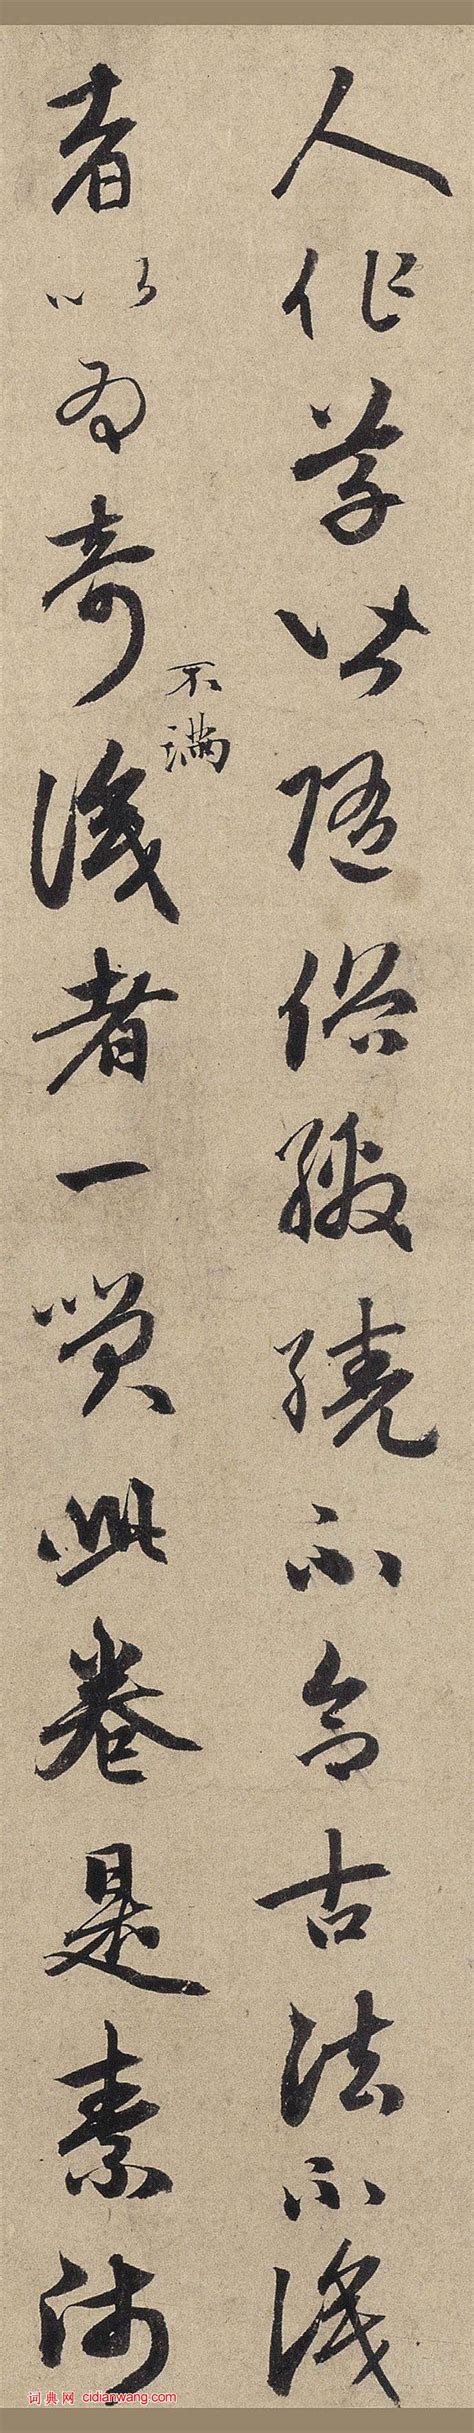 人作草皆随俗缴繞不合古法不識
者以為奇識者一笑此卷是素師
不滿
词典网 cidianwang.com